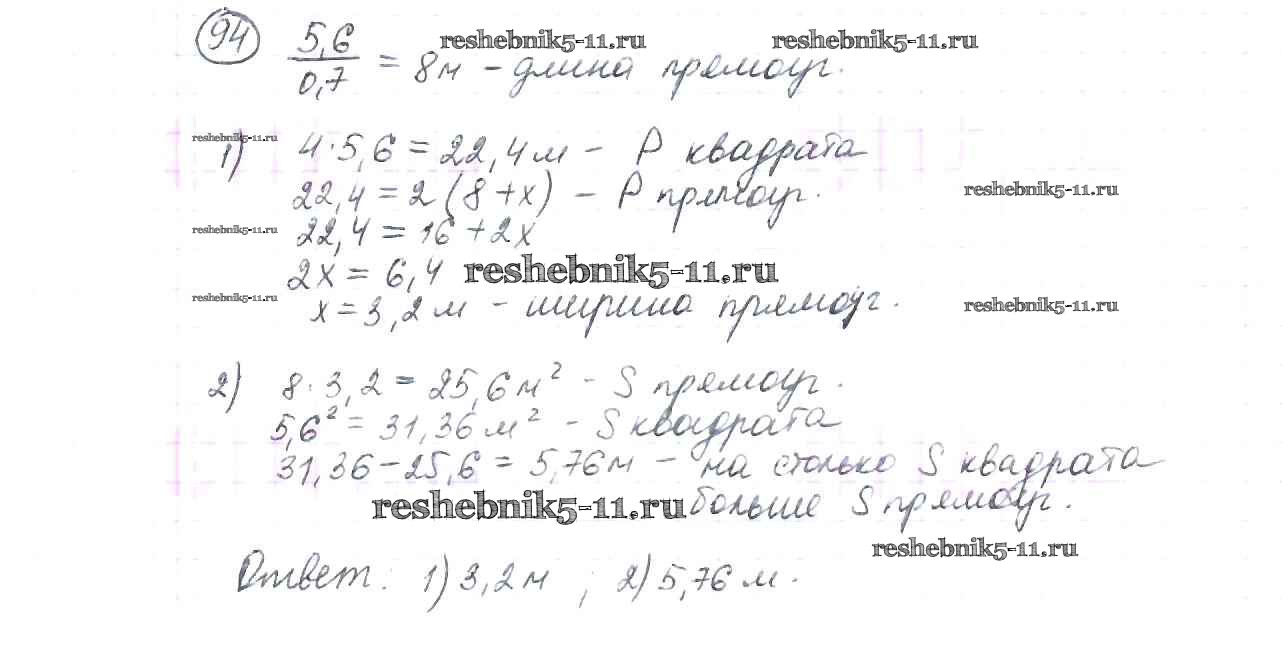 94 5,6/0,7 = 8м - длина прямоуг.
reshebnik5-11.ru reshebnik5-11.ru
reshebnik5-11.ru
1) 4·5,6=22,4м - P квадрата
22,4=2(8+x) - P прямоуг.
reshebnik5-11.ru
reshebnik5-11.ru
22,4=16+2x
2x=6,4
reshebnik5-11.ru
reshebnik5-11.ru
x=3,2м - ширина прямоуг.
reshebnik5-11.ru
2) 8·3,2=25,6м² - S прямоуг.
5,6²=31,36м² - S квадрата
31,36-25,6=5,76м - на столько S квадрата
reshebnik5-11.ru
больше S прямоуг.
reshebnik5-11.ru
Ответ: 1) 3,2м ; 2) 5,76м.